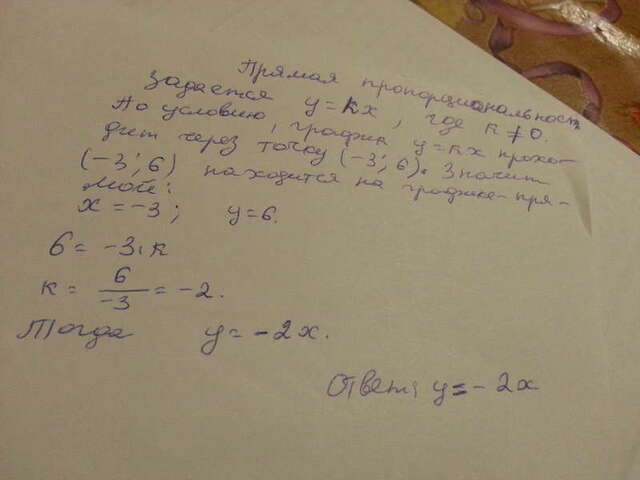 Прямая пропорциональность
задается y=kx, где k≠0.
По условию, график y=kx прохо-
дит через точку (-3;6). Значит
(-3;6) находится на графике-пря-
мой:
x=-3; y=6.
6= -3·k
k= 6/-3 = -2.
Тогда y=-2x.
Ответ: y=-2x